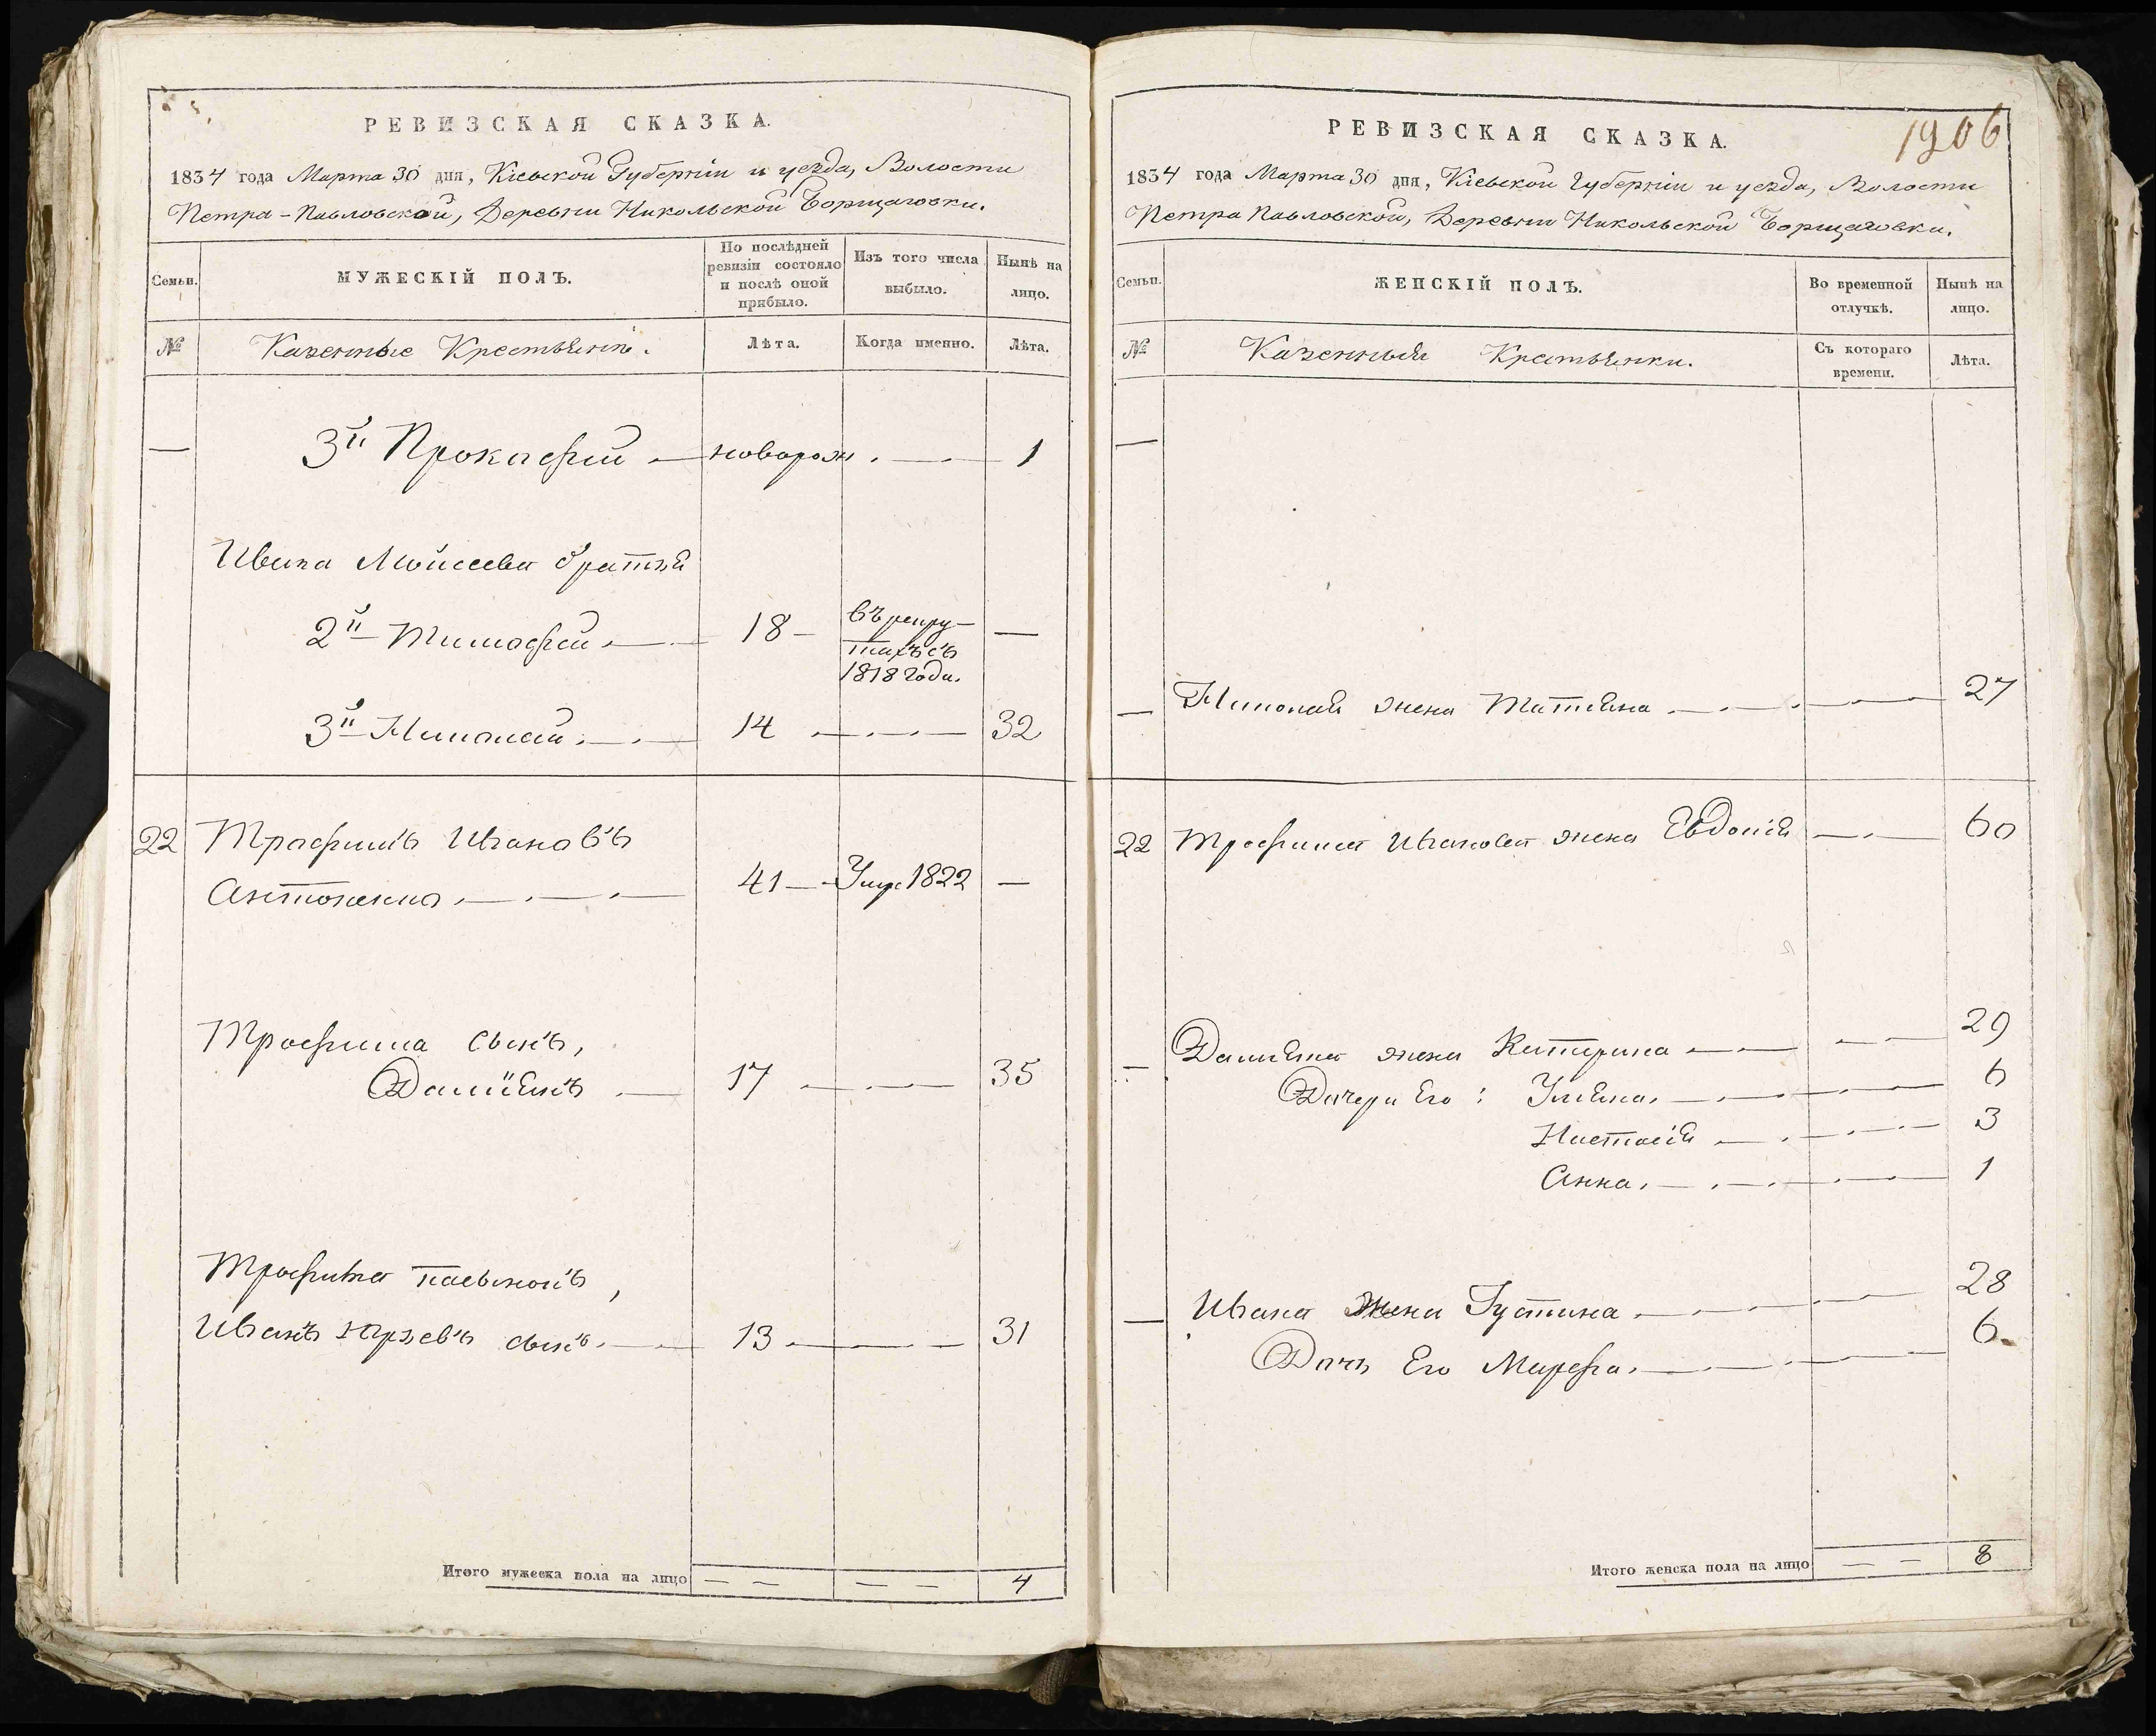 РЕВИЗСКАЯ СКАЗКА.
1834 года Марта 30 дня, Кіевской Губерніи и уезда, Волости
Петра-Павловской, Деревни Никольской Борщаговки.
Семьи.
МУЖЕСКІЙ ПОЛЪ.
По послѣдней ревизіи состояло и послѣ оной прибыло.
Изъ того числа выбыло.
Нынѣ на лицо.
№
Казенные Крестьяне.
Лѣта.
Когда именно.
Лѣта.
— 3й Прокофій — новорож. — 1
Ивана Мойсеева братья
2й Тимофей — 18 — въ рекру-
тахъ съ
1818 года. —
3й Николай — 14 — 32
22 Трофимъ Ивановъ
Антоненко — 41 — Умр 1822 —
Трофима сынъ,
Даміянъ — 17 — 35
Трофима пасынокъ,
Иванъ Юрьевъ сынъ — 13 — 31
Итого мужеска пола на лицо — — — — 4
РЕВИЗСКАЯ СКАЗКА.
1906
1834 года Марта 30 дня, Кіевской Губерніи и уезда, Волости
Петра Павловской, Деревни Никольской Борщаговки.
Семьи.
ЖЕНСКІЙ ПОЛЪ.
Во временной отлучкѣ.
Нынѣ на лицо.
№
Казенныя Крестьянки.
Съ котораго времени.
Лѣта.
—
— Николая жена Татіяна — 27
22 Трофима Иванова жена Евдокія — 60
— Даміяна жена Катерина — 29
Дочери Его: Уліяна — 6
Настасія — 3
Анна — 1
— Ивана жена Густина — 28
Дочь Его Марфа — 6
Итого женска пола на лицо — — 8